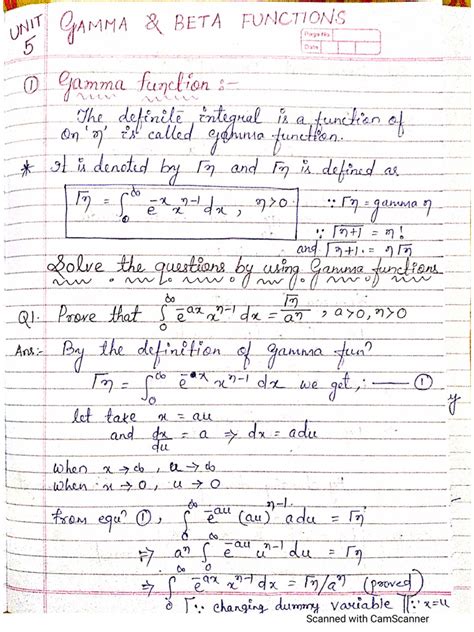 UNIT 5 GAMMA & BETA FUNCTIONS
Page No.
Date
① Gamma function :-
The definite integral is a function of
on 'η' is called gamma function.
* It is denoted by Γη and Γη is defined as
Γη = ∫₀^∞ e^{-x} x^{η-1} dx , η>0 ∵ Γη = gamma η
∵ Γη+1 = η!
and Γη+1 = η Γη
Solve the questions by using Gamma functions
Q1. Prove that ∫₀^∞ e^{-ax} x^{η-1} dx = Γη/a^η , a>0, η>0
Ans:- By the definition of Gamma funⁿ
Γη = ∫₀^∞ e^{-x} x^{η-1} dx we get, :— ①
let take x = au
and dx/du = a ⇒ dx = adu
when x → ∞, u → ∞
when x → 0, u → 0
y
from equⁿ ①, ∫₀^∞ e^{-au} (au)^{η-1} adu = Γη
⇒ a^η ∫₀^∞ e^{-au} u^{η-1} du = Γη
⇒ ∫₀^∞ e^{-ax} x^{η-1} dx = Γη/a^η (proved)
[∵ changing dummy variable] [∵ x=u
Scanned with CamScanner